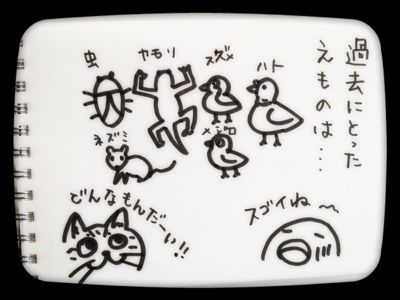 過去にとった
えものは…
虫
ヤモリ
スズメ
ハト
ネズミ
メジロ
どんなもんだーい!!
スゴイね〜